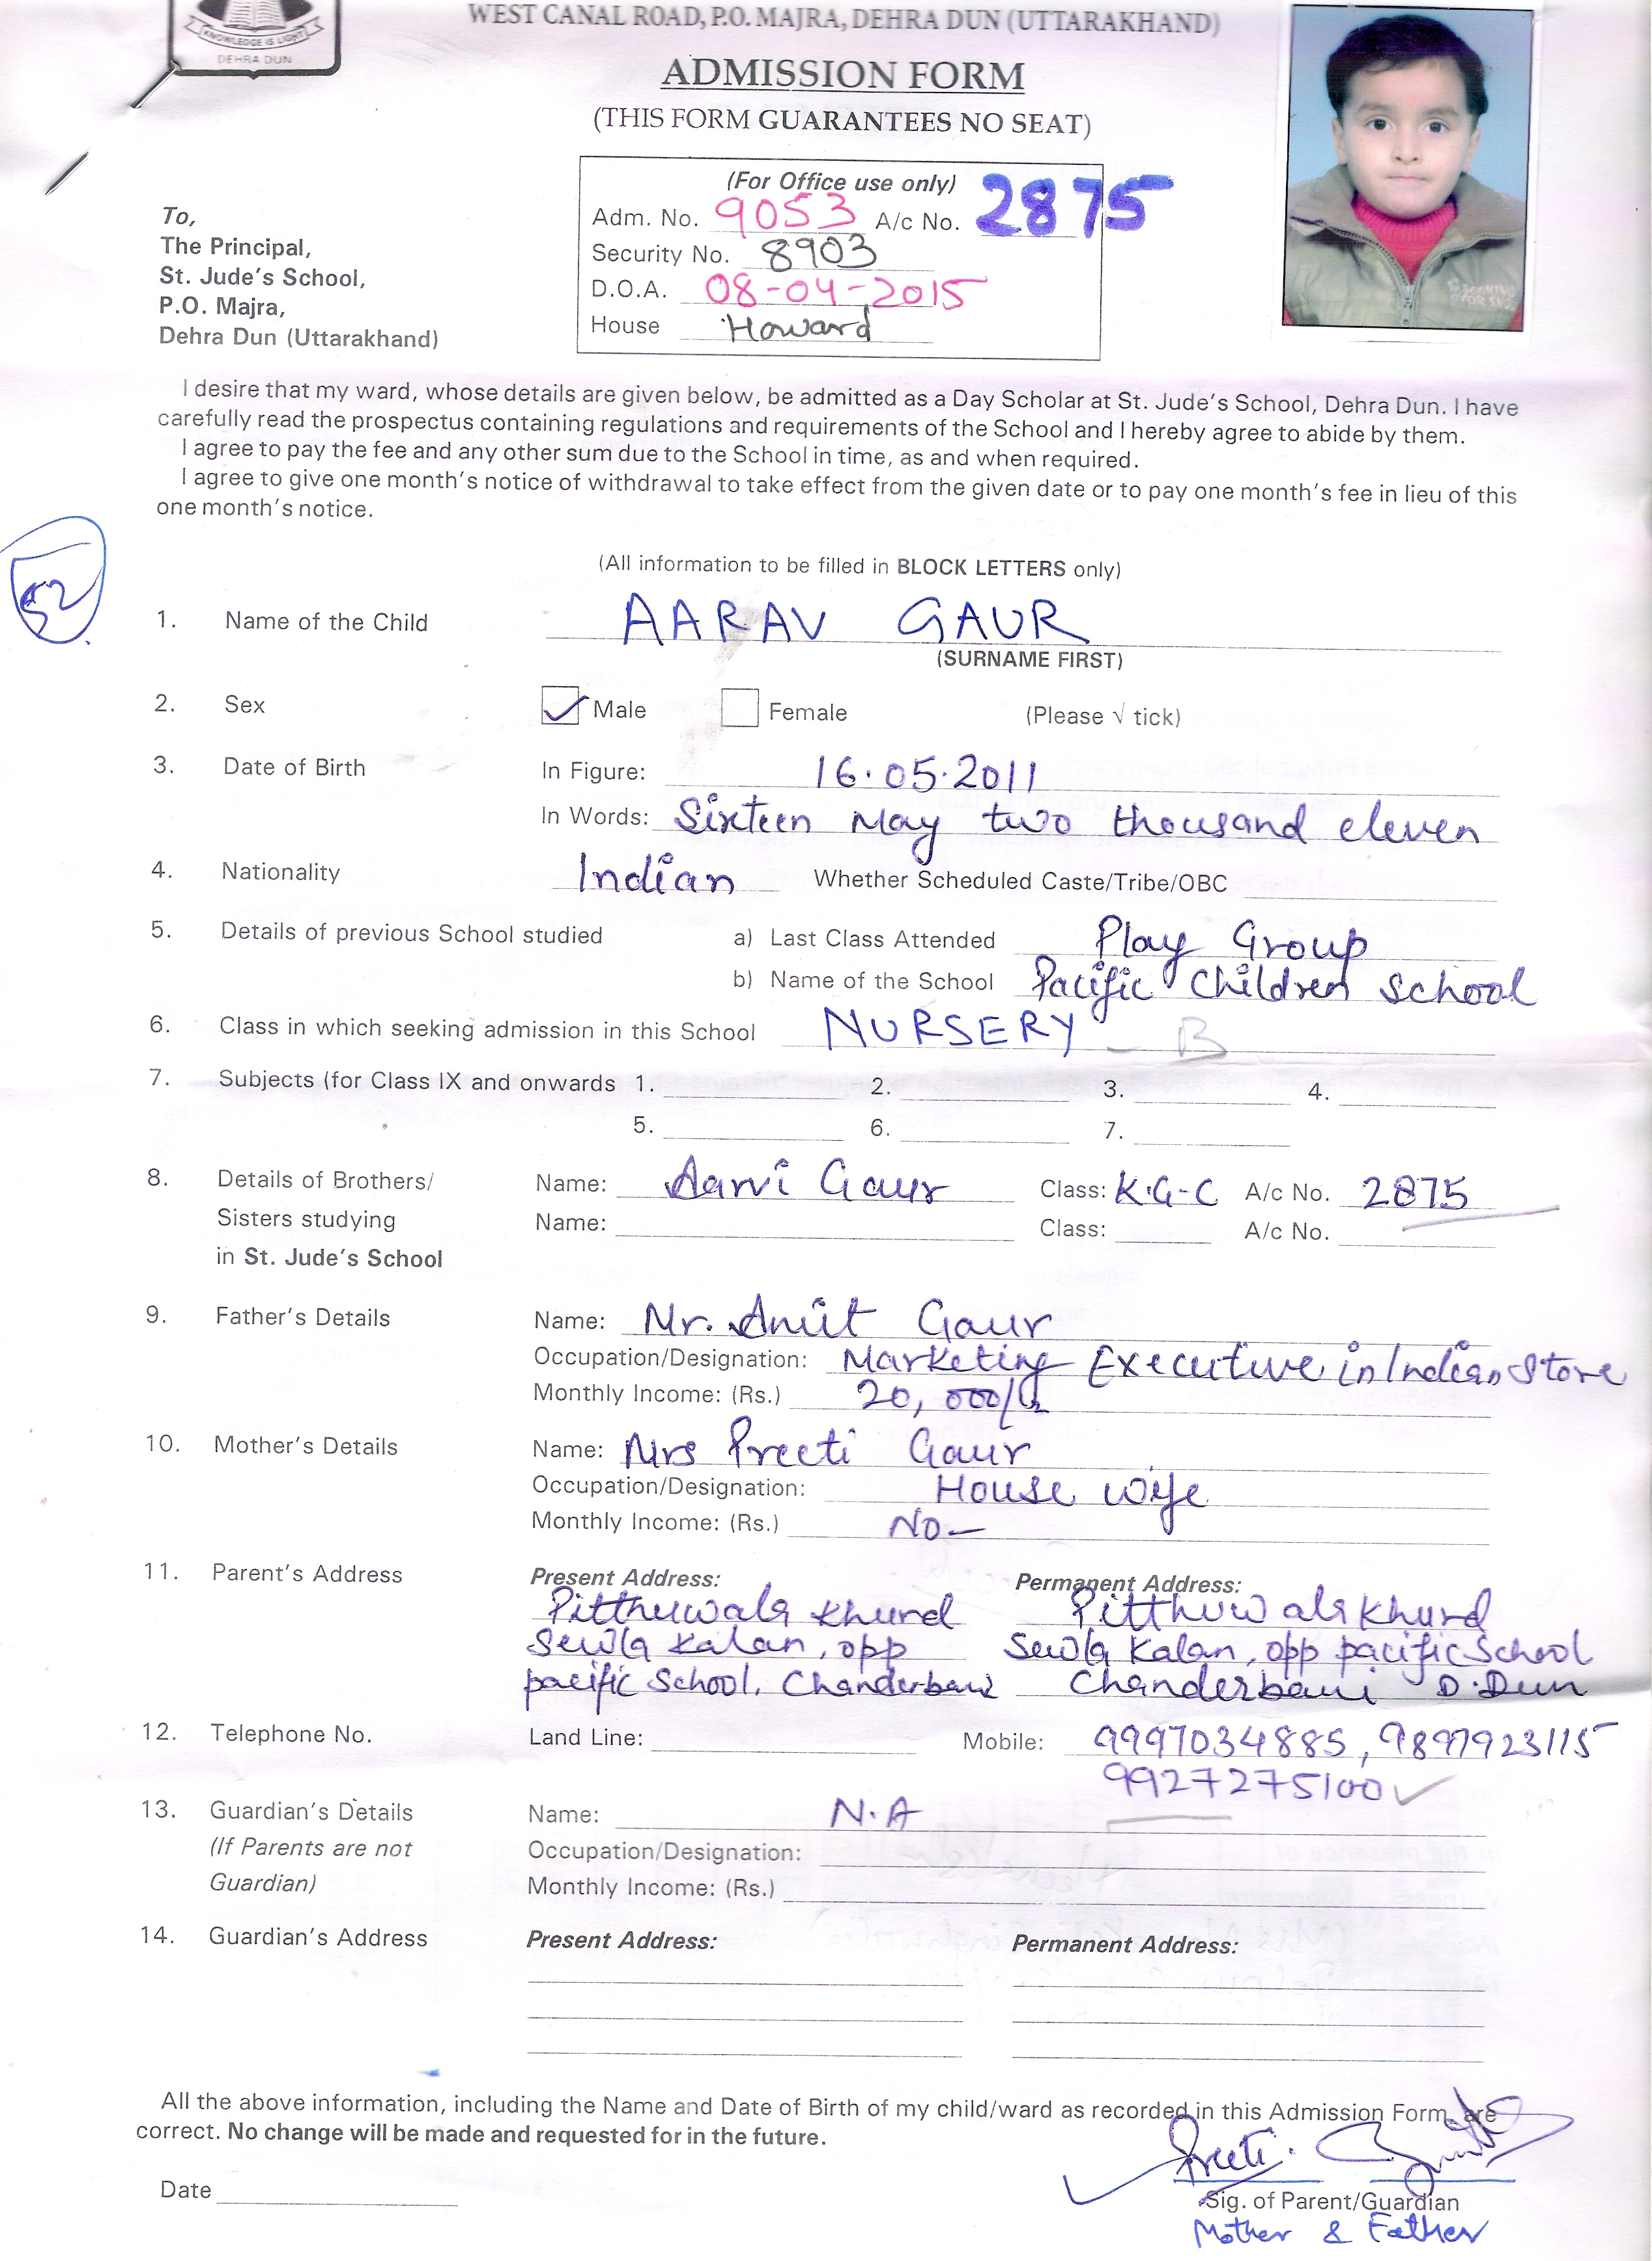 KNOWLEDGE IS LIGHT
DEHRA DUN
WEST CANAL ROAD, P.O. MAJRA, DEHRA DUN (UTTARAKHAND)
ADMISSION FORM
(THIS FORM GUARANTEES NO SEAT)
(For Office use only)
Adm. No. 9053 A/c No. 2875
Security No. 8903
D.O.A. 08-04-2015
House Howard
To,
The Principal,
St. Jude's School,
P.O. Majra,
Dehra Dun (Uttarakhand)
I desire that my ward, whose details are given below, be admitted as a Day Scholar at St. Jude's School, Dehra Dun. I have
carefully read the prospectus containing regulations and requirements of the School and I hereby agree to abide by them.
I agree to pay the fee and any other sum due to the School in time, as and when required.
I agree to give one month's notice of withdrawal to take effect from the given date or to pay one month's fee in lieu of this
one month's notice.
52
(All information to be filled in BLOCK LETTERS only)
1. Name of the Child AARAV GAUR
(SURNAME FIRST)
2. Sex Male Female (Please √ tick)
3. Date of Birth In Figure: 16.05.2011
In Words: Sixteen May two thousand eleven
4. Nationality Indian Whether Scheduled Caste/Tribe/OBC
5. Details of previous School studied a) Last Class Attended Play Group
b) Name of the School Pacific Children School
6. Class in which seeking admission in this School NURSERY - B
7. Subjects (for Class IX and onwards 1. 2. 3. 4.
5. 6. 7.
8. Details of Brothers/ Name: Aarvi Gaur Class: K.G-C A/c No. 2875
Sisters studying Name: Class: A/c No.
in St. Jude's School
9. Father's Details Name: Mr. Amit Gaur
Occupation/Designation: Marketing Executive in Indian Store
Monthly Income: (Rs.) 20,000/
10. Mother's Details Name: Mrs Preeti Gaur
Occupation/Designation: House wife
Monthly Income: (Rs.) No-
11. Parent's Address Present Address: Permanent Address:
Pitthuwala Khurd Pitthuwala Khurd
Sewla Kalan, opp Sewla Kalan, opp pacific School
pacific School, Chanderbani Chanderbani D.Dun
12. Telephone No. Land Line: Mobile: 9997034885, 9897923115
9927275100
13. Guardian's Details Name: N.A
(If Parents are not Occupation/Designation:
Guardian) Monthly Income: (Rs.)
14. Guardian's Address Present Address: Permanent Address:
All the above information, including the Name and Date of Birth of my child/ward as recorded in this Admission Form, are
correct. No change will be made and requested for in the future.
Preeti.
Date Sig. of Parent/Guardian
Mother & Father